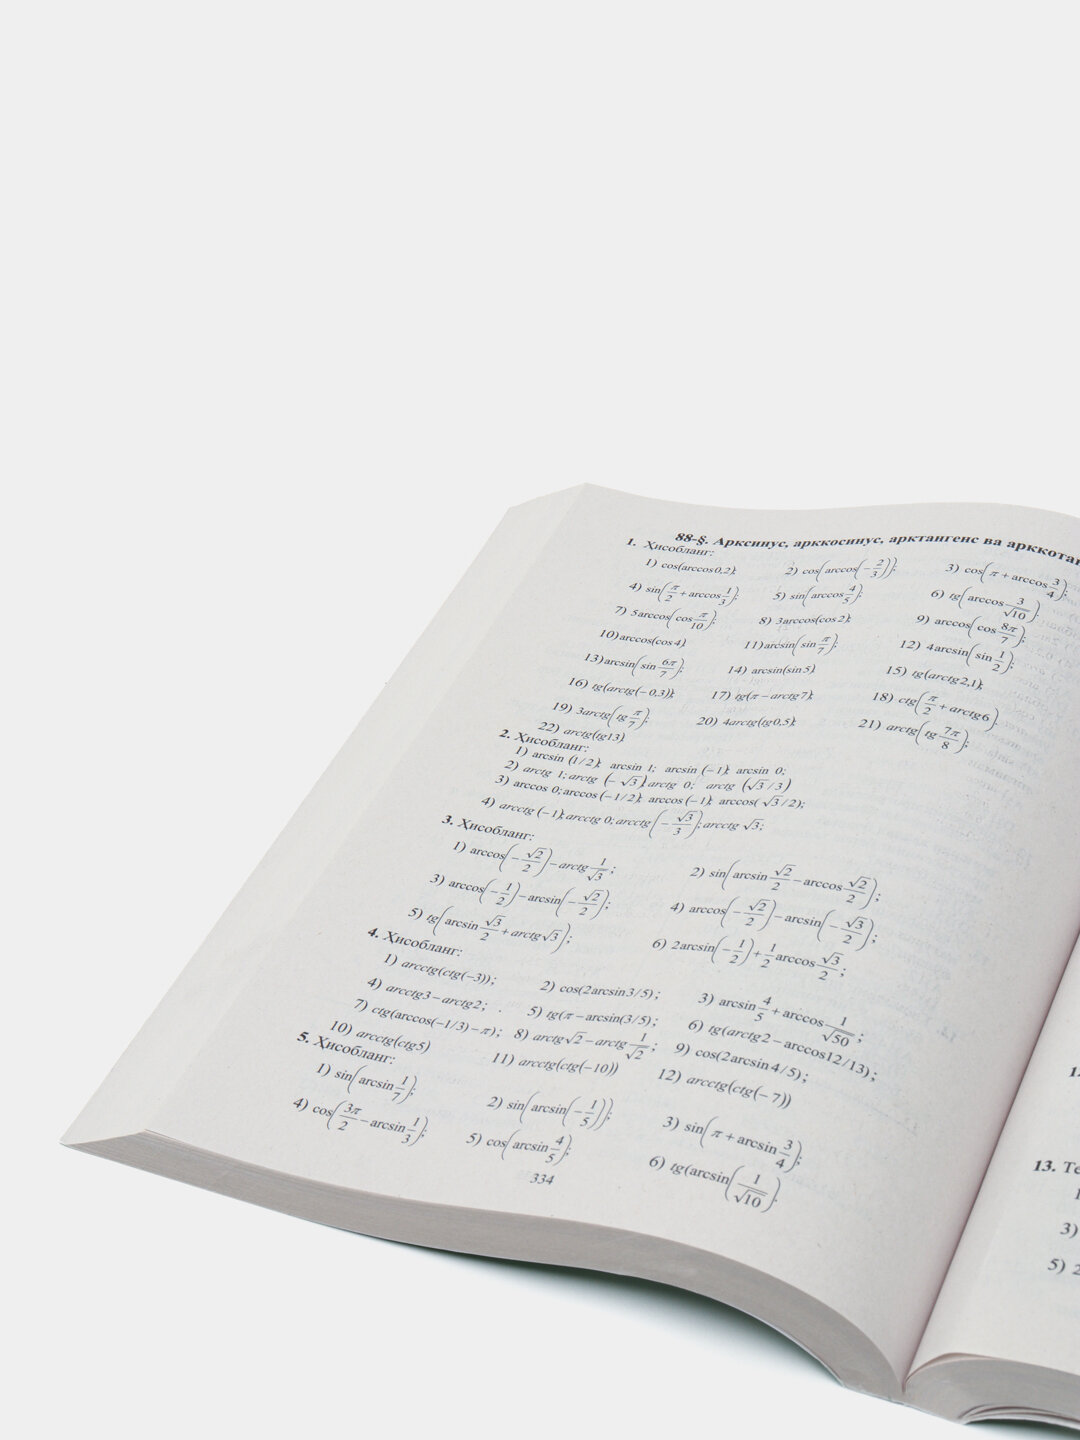 88-§. Арксинус, арккосинус, арктангенс ва
1. Ҳисобланг:
1) cos(arccos0,2); 2) cos(arccos(-2/3)); 3) cos(π+arccos 3/4);
4) sin(π/2+arccos 1/3); 5) sin(arccos 4/5); 6) tg(arccos 3/√10);
7) 5arccos(cos π/10); 8) 3arccos(cos2); 9) arccos(cos 8π/7);
10) arccos(cos4); 11) arcsin(sin π/7); 12) 4arcsin(sin 1/2);
13) arcsin(sin 6π/7); 14) arcsin(sin5); 15) tg(arctg2,1);
16) tg(arctg(-0,3)); 17) tg(π-arctg7); 18) ctg(π/2+arctg6)
19) 3arctg(tg π/7); 20) 4arctg(tg0,5); 21) arctg(tg 7π/8);
22) arctg(tg13)
2. Ҳисобланг:
1) arcsin (1/2); arcsin 1; arcsin (-1); arcsin 0;
2) arctg 1; arctg (-√3); arctg 0; arctg (√3/3)
3) arccos 0; arccos (-1/2); arccos (-1); arccos(√3/2);
4) arcctg (-1); arcctg 0; arcctg (-√3/3); arcctg √3;
3. Ҳисобланг:
1) arccos(-√2/2)-arctg 1/√3; 2) sin(arcsin √2/2-arccos √2/2);
3) arccos(-1/2)-arcsin(-√2/2); 4) arccos(-√2/2)-arcsin(-√3/2);
5) tg(arcsin √3/2+arctg√3); 6) 2arcsin(-1/2)+1/2 arccos √3/2;
4. Ҳисобланг:
1) arcctg(ctg(-3)); 2) cos(2arcsin3/5); 3) arcsin 4/5+arccos 1/√50;
4) arcctg3-arctg2; 5) tg(π-arcsin(3/5); 6) tg(arctg2-arccos12/13);
7) ctg(arccos(-1/3)-π); 8) arctg√2-arctg 1/√2; 9) cos(2arcsin4/5);
10) arcctg(ctg5) 11) arcctg(ctg(-10)) 12) arcctg(ctg(-7))
5. Ҳисобланг:
1) sin(arcsin 1/7); 2) sin(arcsin(-1/5)); 3) sin(π+arcsin 3/4);
4) cos(3π/2-arcsin 1/3); 5) cos(arcsin 4/5); 6) tg(arcsin(1/√10).
334
13.
3)
5)